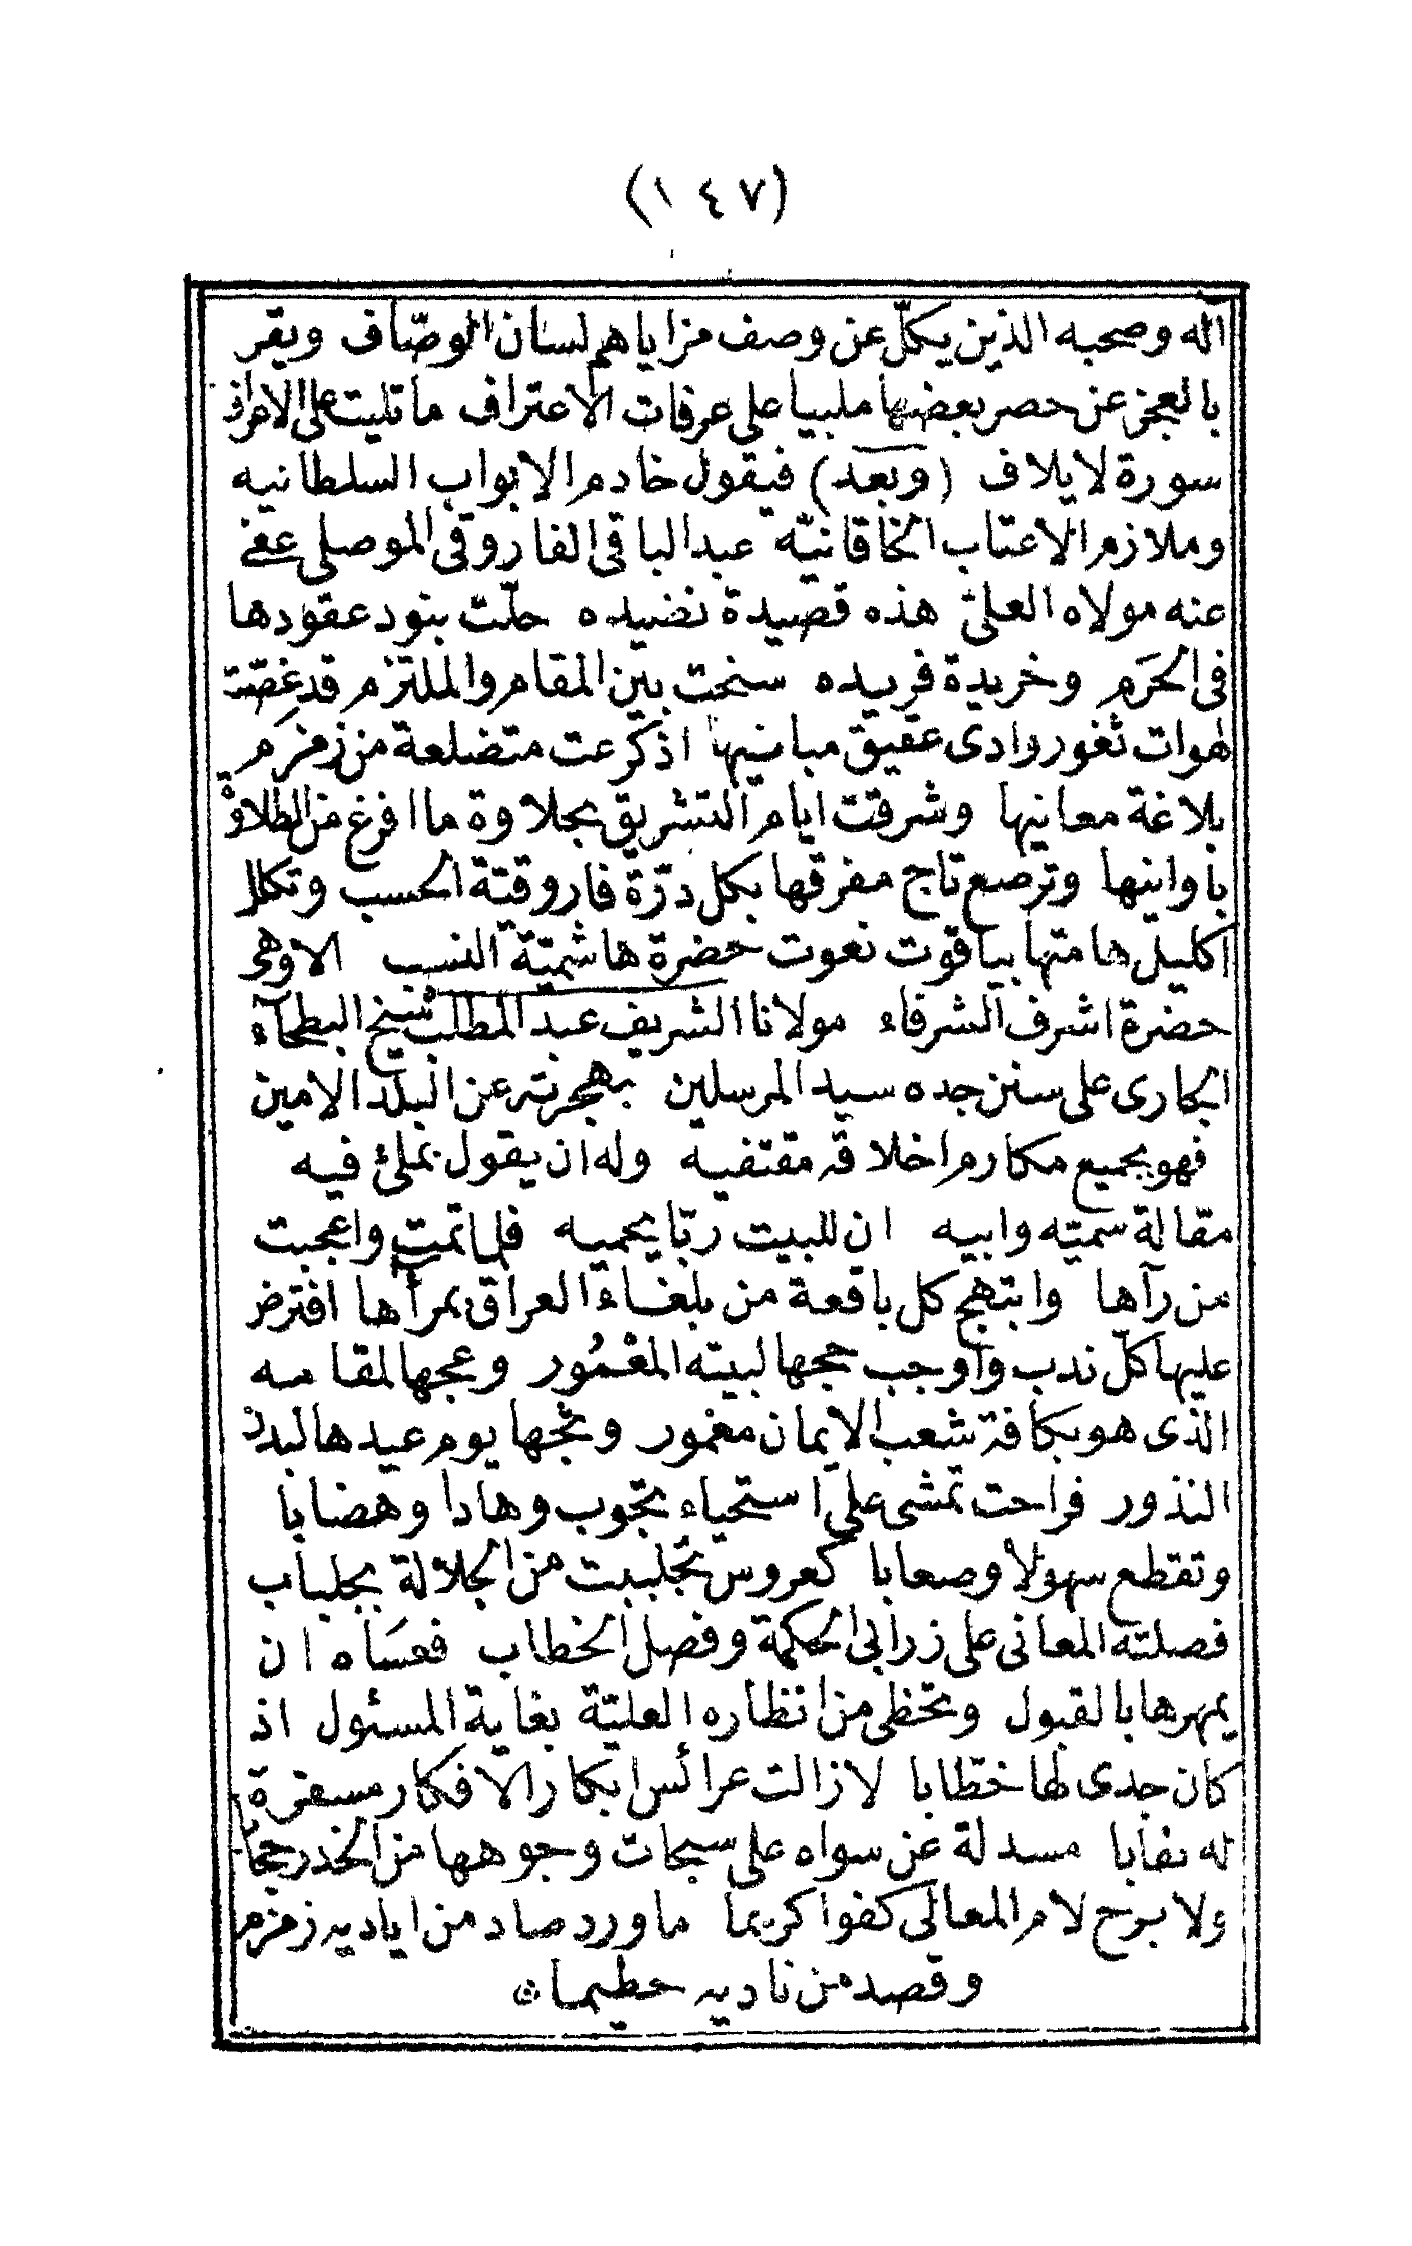 (١٤٧)
آله وصحبه الذين يكلّ عن وصف مزاياهم لسان الوصّاف ويقر
بالعجز عن حصر بعضها ملبيا على عرفات الاعتراف ما تليت على الاعراف
سورة لايلاف (وبعد) فيقول خادم الابواب السلطانيه
وملازم الاعتاب الخاقانيّه عبد الباقى الفاروقى الموصلى عفى
عنه مولاه العلىّ هذه قصيدة نضيده حلّت بنود عقودها
فى الحَرَم وخريدة فريده سنحت بين المقام والملتزم قد غصّت
لهوات ثغور وادى عقيق مبانيها اذ كرعت متضلعة من زمزم
بلاغة معانيها وشرقت ايام التشريق بحلاوة ما افرغ من الطلاوة
باوانيها وترصع تاج مفرقها بكل درّة فاروقيّة الحسب وتكلل
اكليل هامتها بياقوت نعوت حضرة هاشميّة النسب الا وهى
حضرة اشرف الشرفاء مولانا الشريف عبد المطلب شيخ البطحآء
الجارى على سنن جده سيد المرسلين بهجرته عن البلد الامين
فهو بجميع مكارم اخلاقه مقتفيه وله ان يقول بملئ فيه
مقالة سميّه وابيه ان للبيت ربّا يحميه فلما تمت واعجبت
من رآها وابتهج كل باقعة من بلغاء العراق بمرآها افترض
عليها كلّ ندب واوجب حجها لبيته المعْمُور وعجها لمقامه
الذى هو بكافة شعب الايمان مغمور وثجها يوم عيدها لبدن
النذور فراحت تمشى على استحياء تجوب وهادا وهضابا
وتقطع سهولا وصعابا كعروس تجلببت من الجلالة بجلباب
فصلته المعانى على زرابى الحكمة وفصل الخطاب فعسَاه ان
يمهرها بالقبول وتحظى من انظاره العليّة بغاية المسئول اذ
كان جدى لها خطابا لا زالت عرائس ابكار الافكار مسفرة
له نقابا مسدلة عن سواه على سبحات وجوهها من الخدر حجابا
ولا برح لام المعالى كفوا كريما ما ورد صاد من اياديه زمزم
وقصد من ناديه حطيما